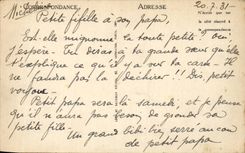 CORRESPONDANCE
ADRESSE
20.7.31
Petite fifille à son papa.
Est-elle mignonne la toute petite? Oui!
J'espère. Tu diras à ta grande sœur qu'elle
t'explique ce qu'il y a sur la carte. Il
ne faudra pas la déchirer!! Dis, petit
voyou.
Petit papa sera là samedi, et je pense
qu'il n'aura pas besoin de gronder sa
petite fille.
Un grand serre au cou
de petit papa